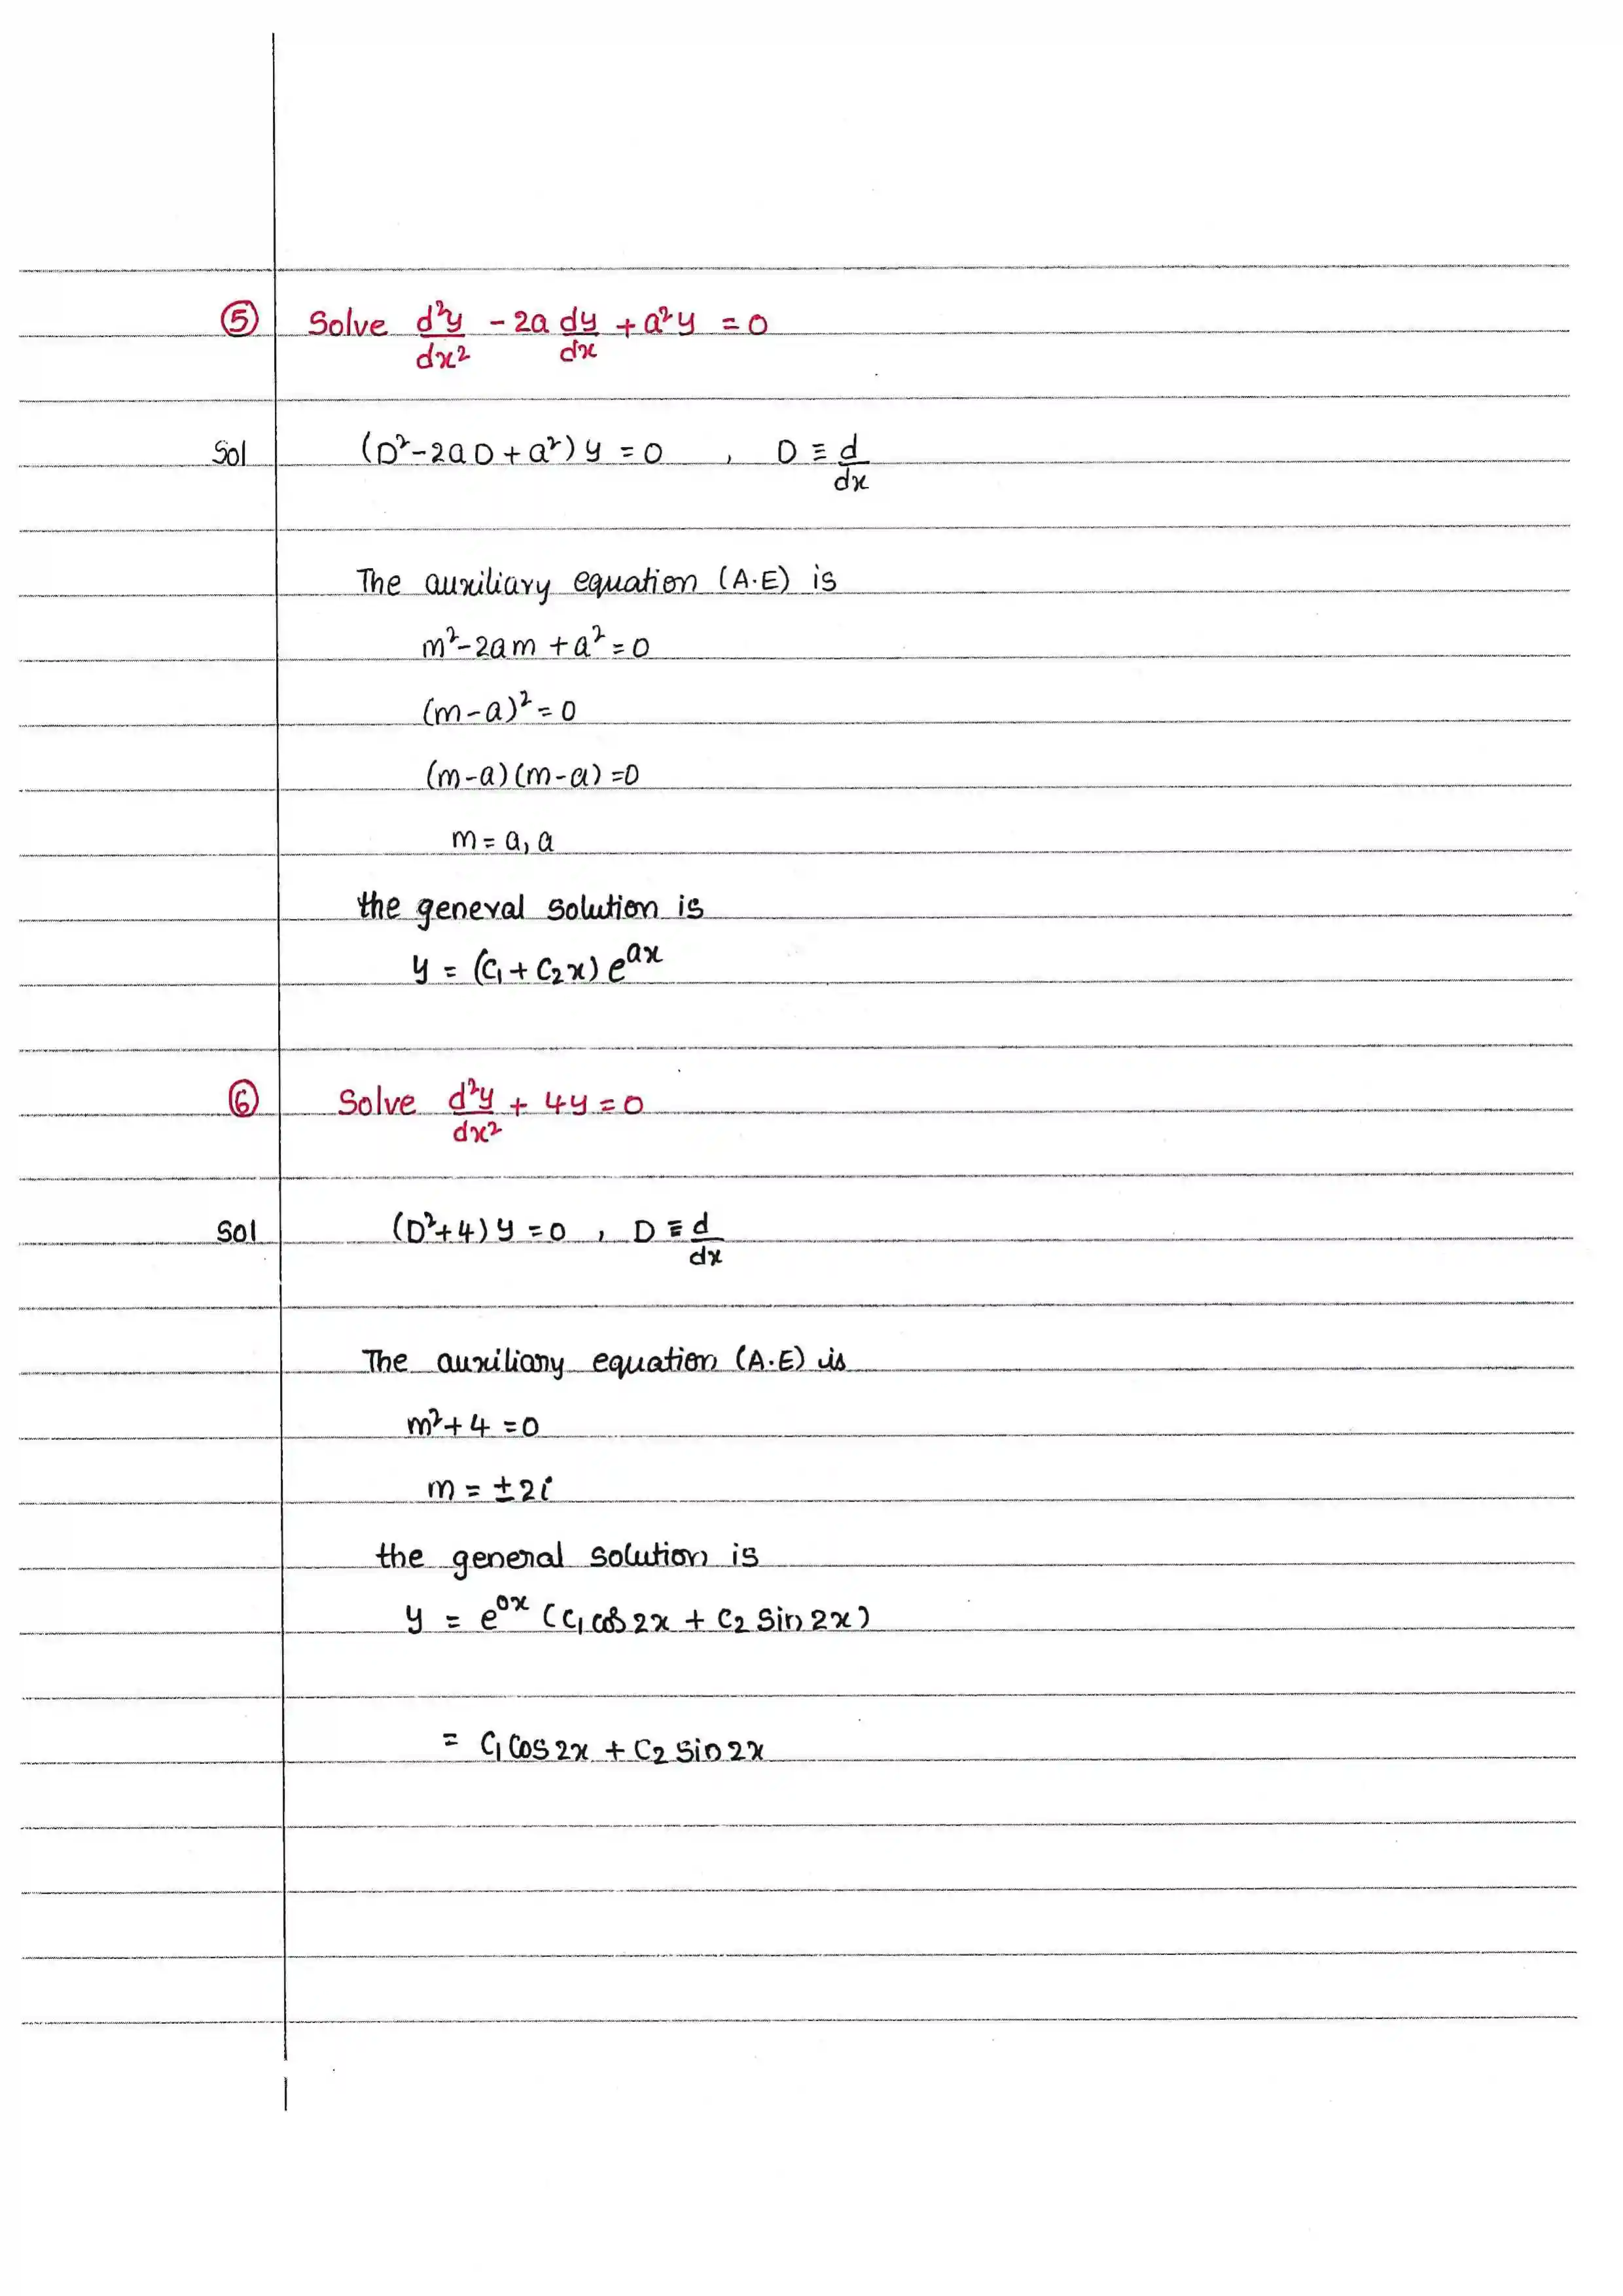 ⑤ Solve d²y/dx² - 2a dy/dx + a²y = 0
Sol (D²-2aD+a²)y = 0 , D ≡ d/dx
The auxiliary equation (A.E) is
m²-2am + a² = 0
(m-a)² = 0
(m-a)(m-a) = 0
m = a, a
the general solution is
y = (C₁ + C₂x) e^{ax}
⑥ Solve d²y/dx² + 4y = 0
Sol (D²+4)y = 0 , D ≡ d/dx
The auxiliary equation (A.E) is
m²+4 = 0
m = ±2i
the general solution is
y = e^{0x} (C₁ cos 2x + C₂ Sin 2x)
= C₁ Cos 2x + C₂ Sin 2x